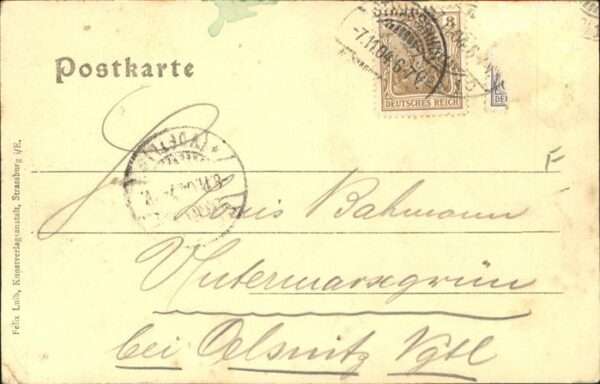 Postkarte
STRASSBURG
7.11.04.6-7
3
DEUTSCHES REICH
Louis Bahmann
Untermarxgrün
bei Oelsnitz Vgtl
Felix Luib, Kunstverlagsanstalt, Strassburg i/E.